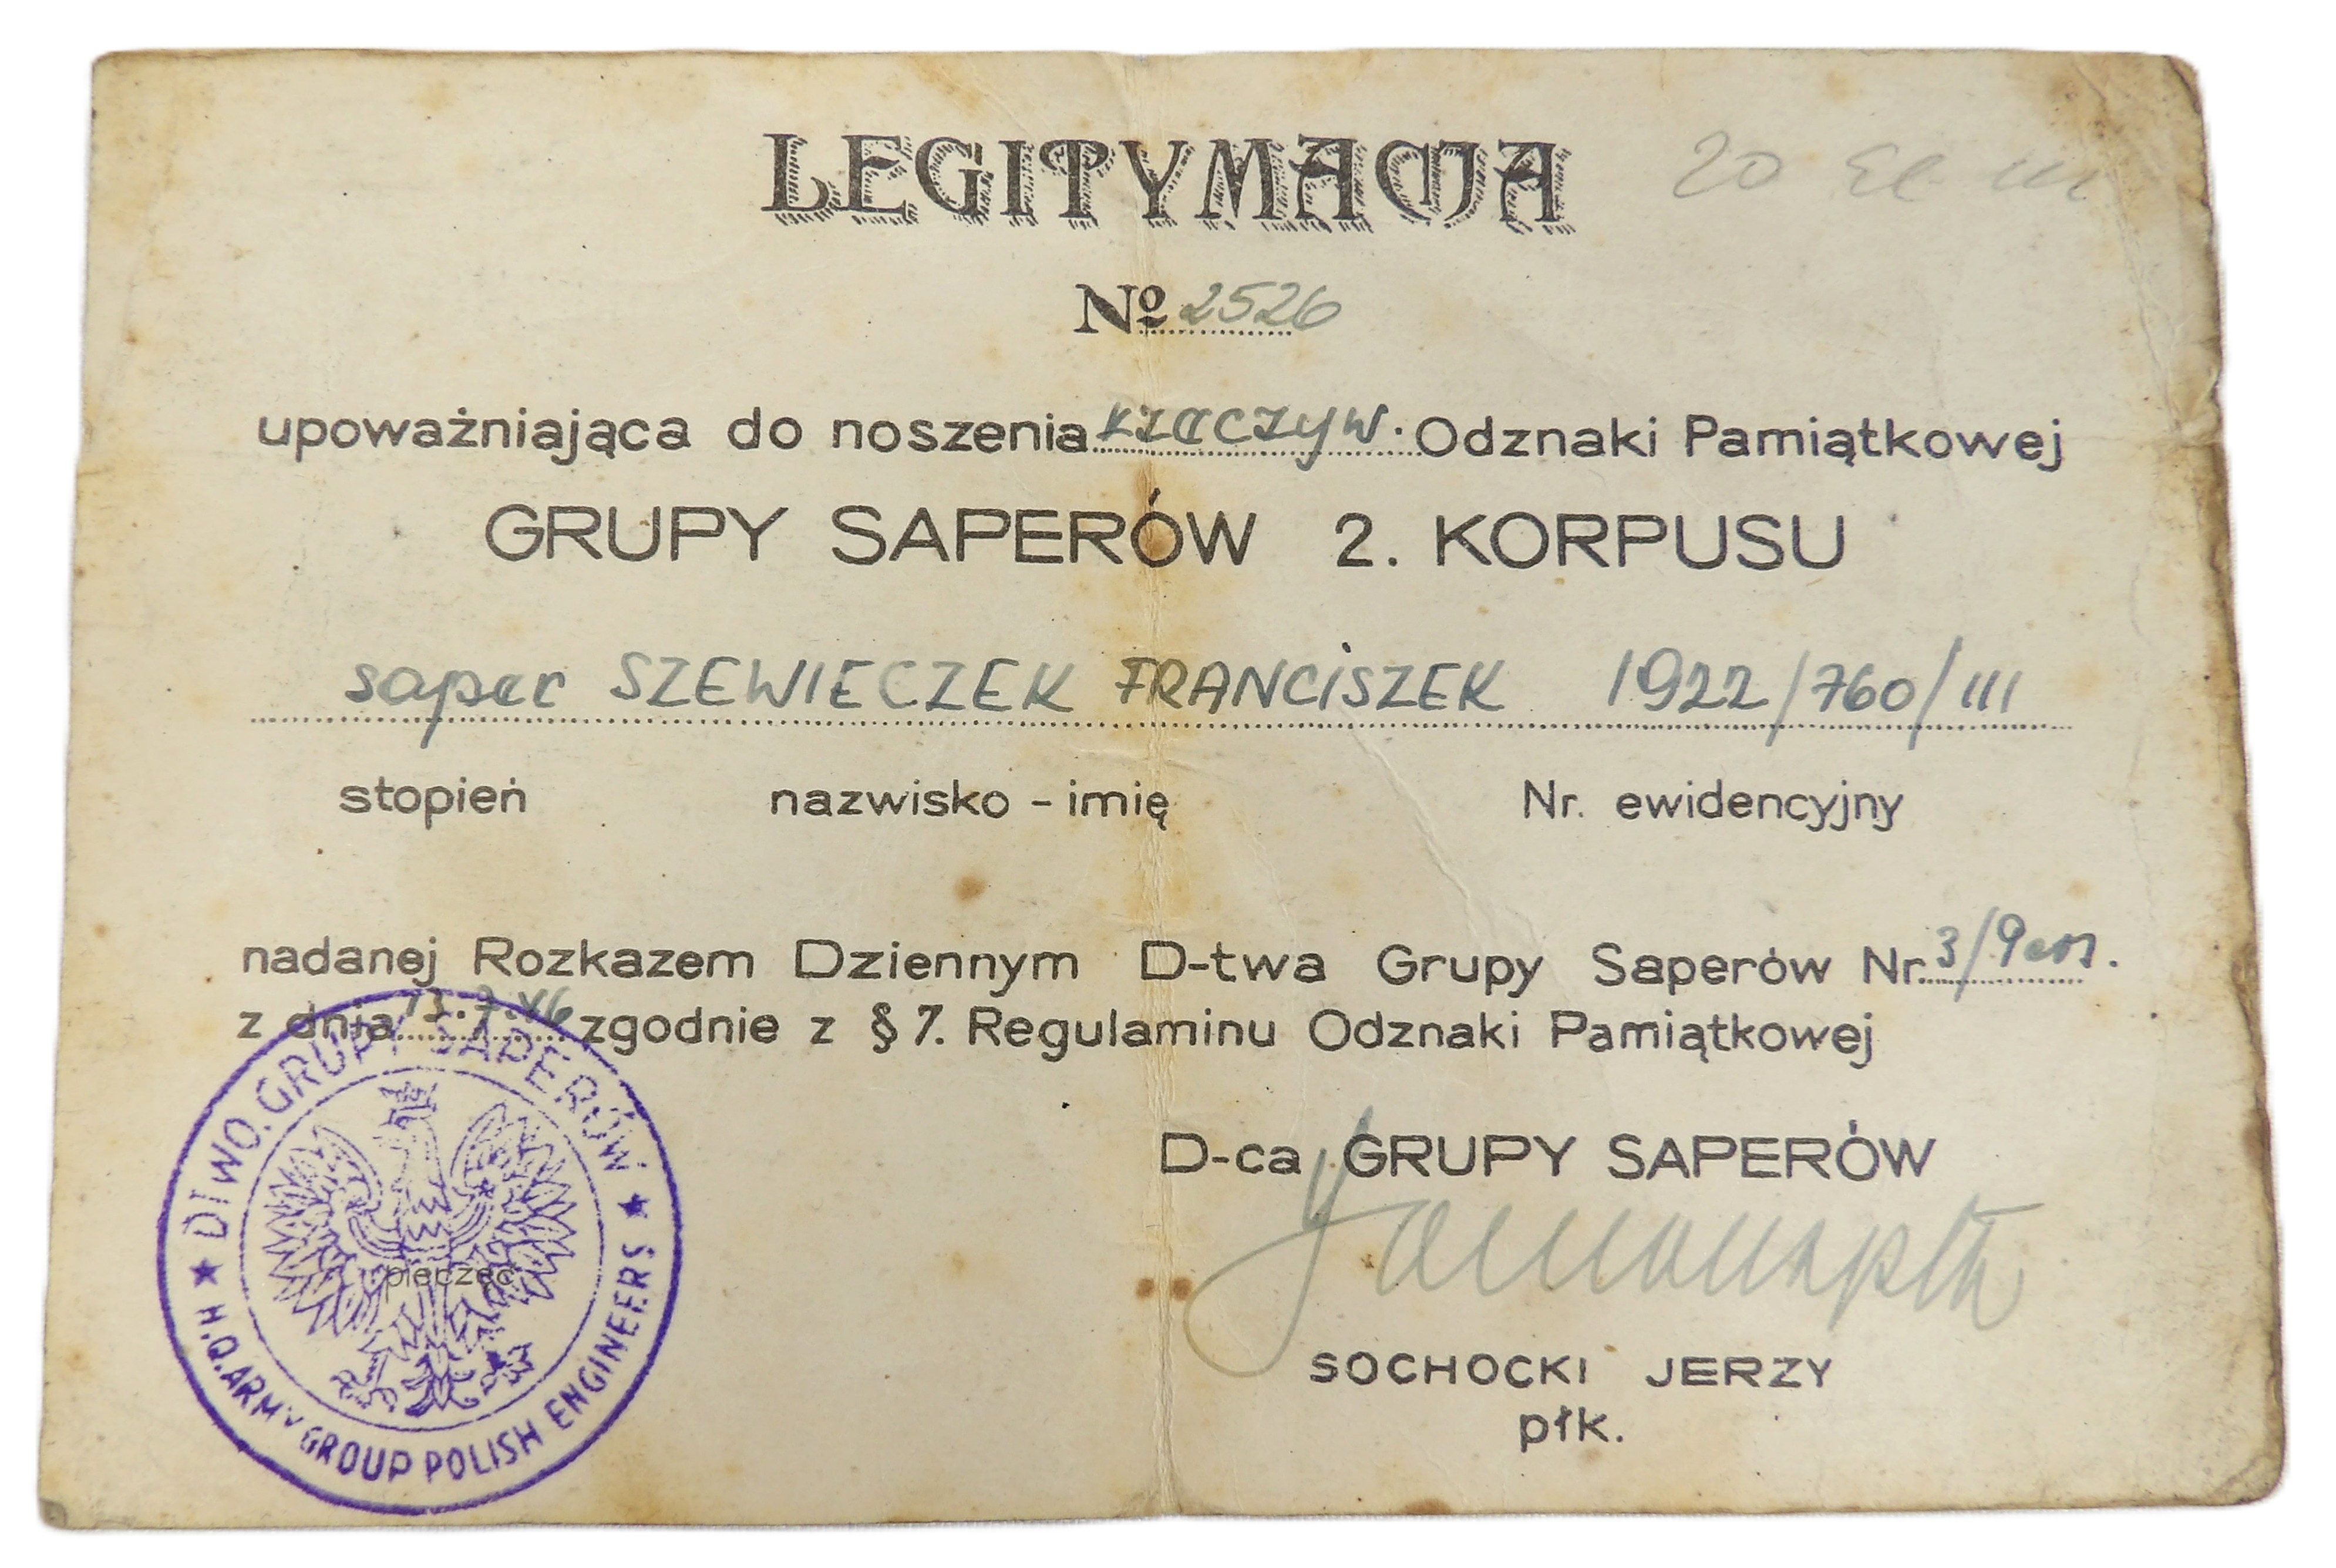 LEGITYMACJA
Nº 2526
upoważniająca do noszenia rzeczyw. Odznaki Pamiątkowej
GRUPY SAPERÓW 2. KORPUSU
saper SZEWIECZEK FRANCISZEK 1922/760/III
stopień nazwisko - imię Nr. ewidencyjny
nadanej Rozkazem Dziennym D-twa Grupy Saperów Nr. 3/
z dnia 13.7.46 zgodnie z § 7. Regulaminu Odznaki Pamiątkowej
D-ca GRUPY SAPERÓW
SOCHOCKI JERZY
płk.
pieczęć
DTWO. GRUPY SAPERÓW
H.Q. ARMY GROUP POLISH ENGINEERS